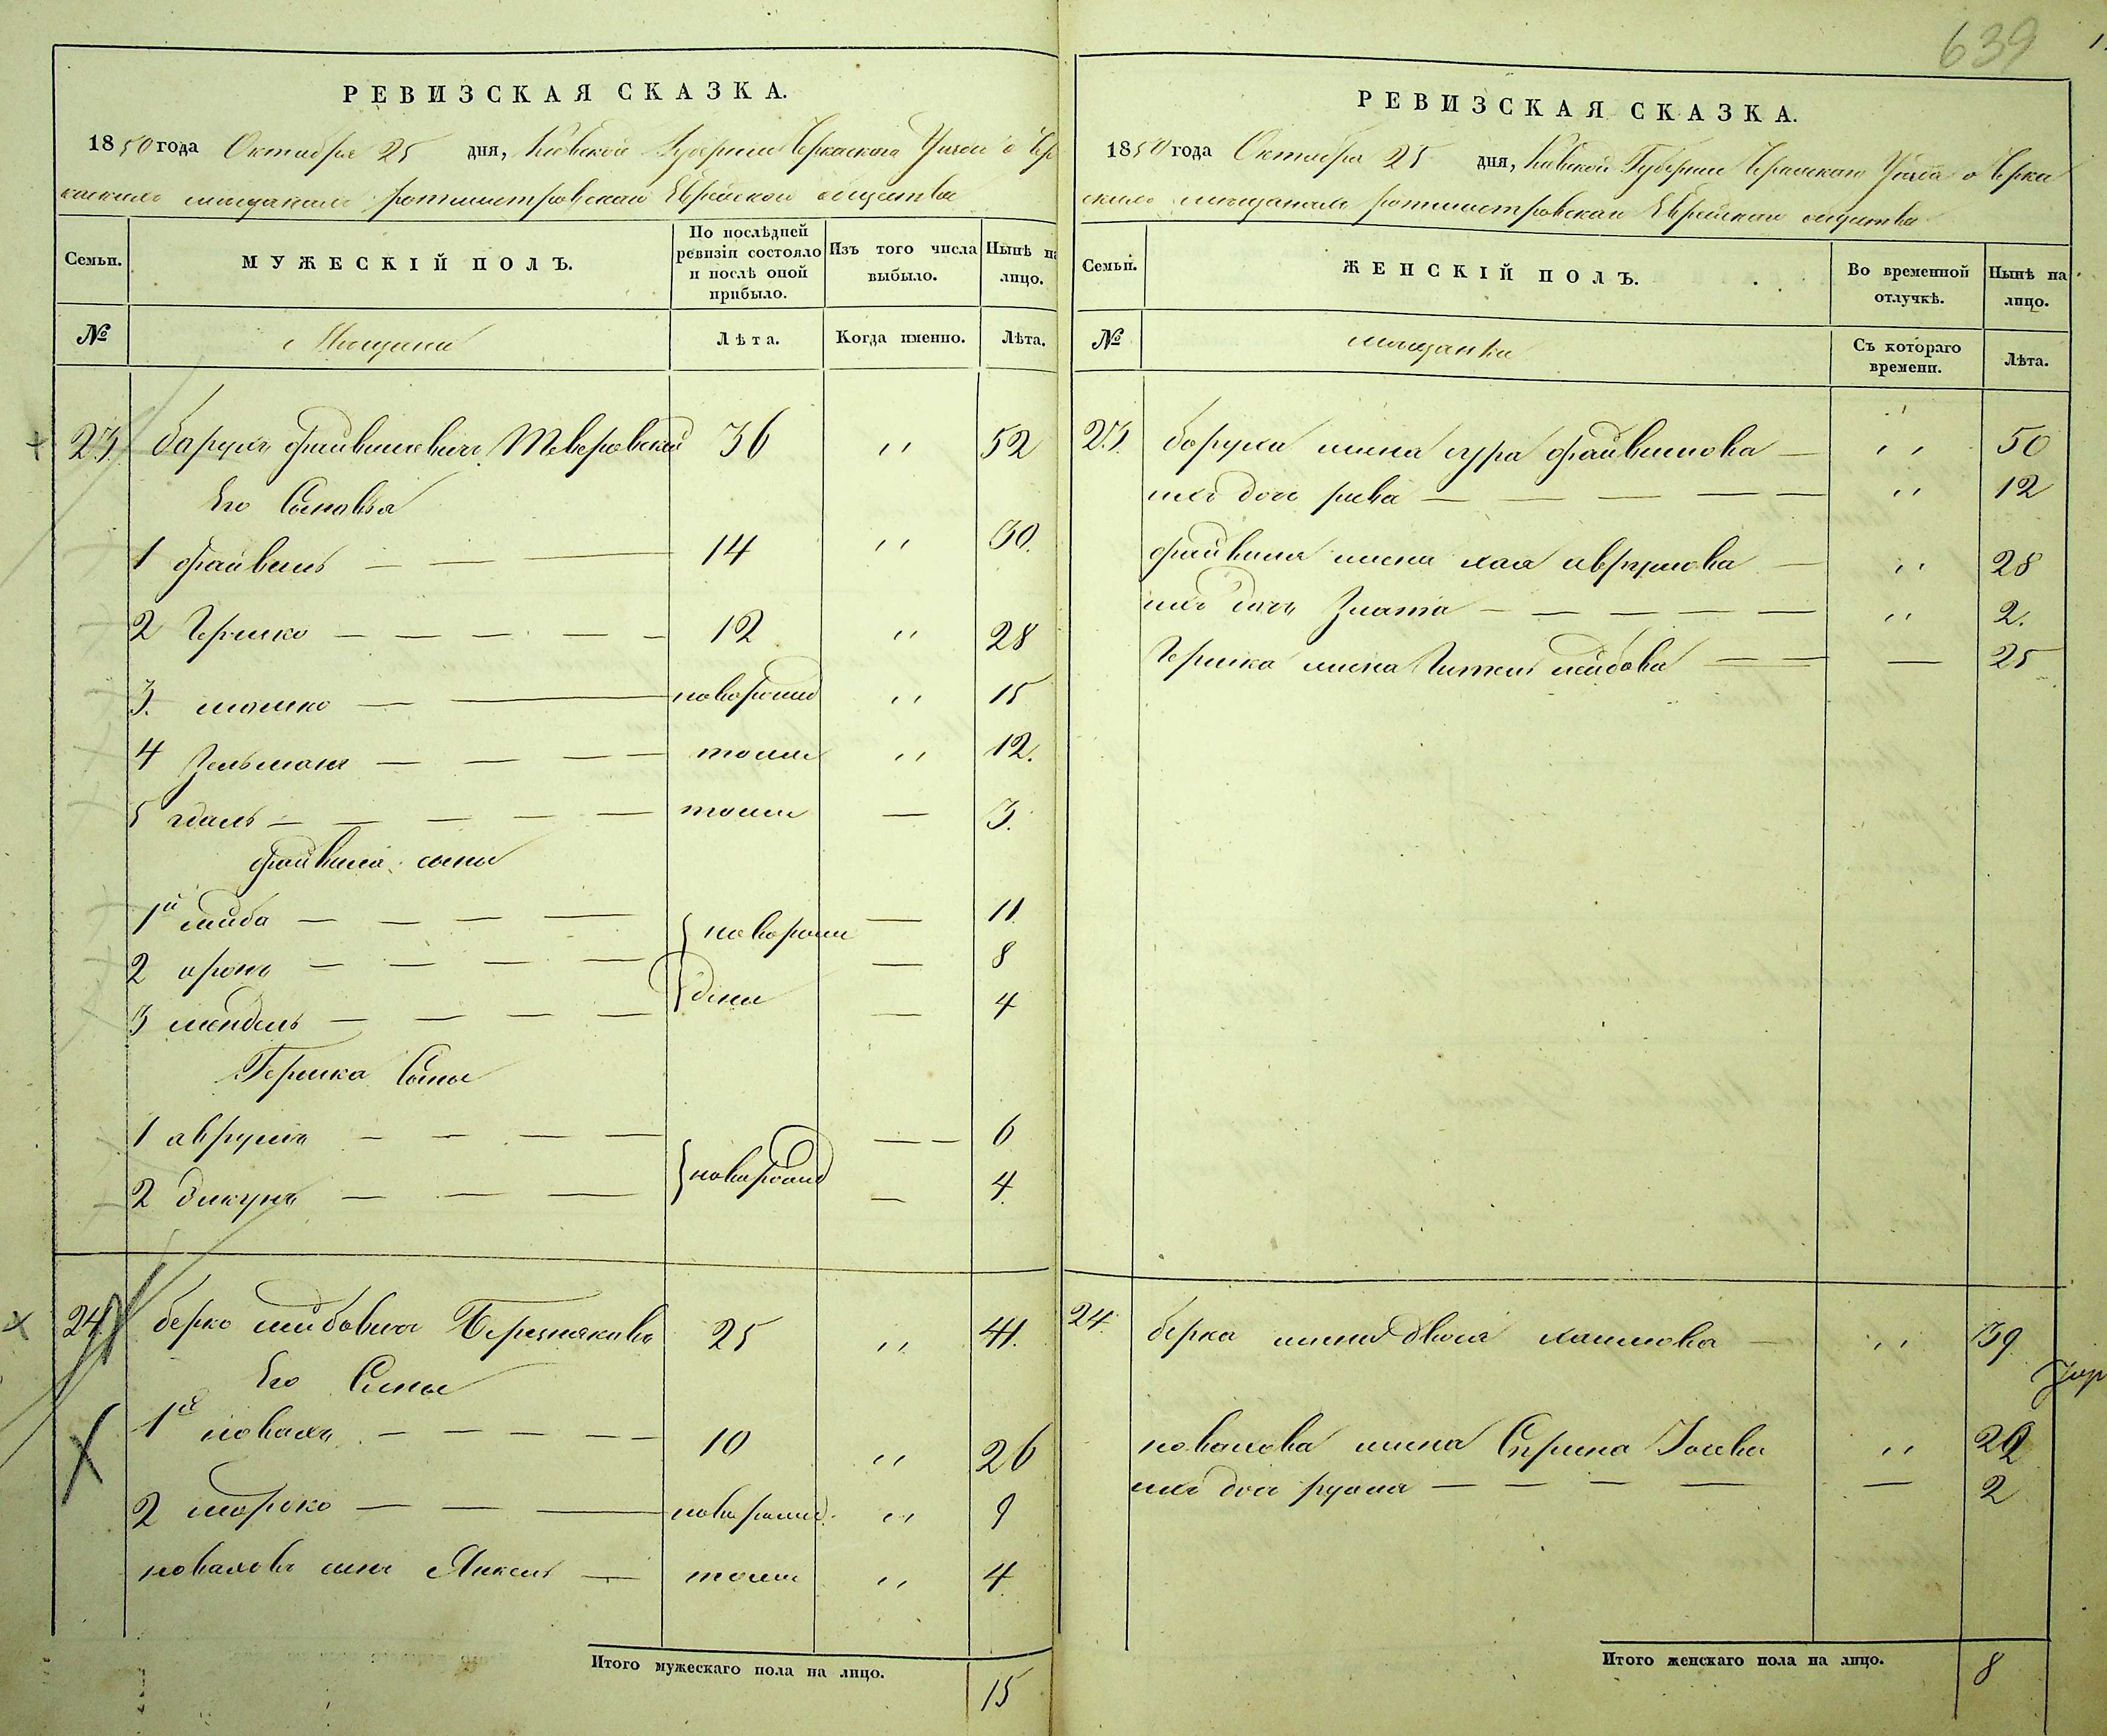 639
РЕВИЗСКАЯ СКАЗКА.
1850 года Октября 25 дня, Киевской Губернии Черкаского Уезда о Чер
каскихъ мещанахъ ротмистровскаго Еврейскаго общества
Семьи.
МУЖЕСКІЙ ПОЛЪ.
По послѣдней ревизіи состояло и послѣ оной прибыло.
Изъ того числа выбыло.
Нынѣ на лицо.
№
Мещане
Лѣта.
Когда именно.
Лѣта.
23. Барухъ Файвишевичъ Тверовский 36 " 52
Его Сыновья
1 Файвишъ — — — 14 " 30.
2 Гершко — — — — — 12 " 28
3. мошко — — новорожд " 15
4 Зельманъ — — — — тоже " 12.
5 гдаль — — — — — тоже — 3.
Файвиша сыны
1й лейба — — — — новорож — 11.
2 аронъ — — — — — 8
3 мендель — — — — дены — 4
Гершка Сыны
1 аврумъ — — — — новорожд — — 6
2 — — — — 4.
24. берко лейбовичъ 25 " 41.
Его Сыны
1й новахъ — — — — — 10 " 26
2 шороко — — — новорожд. " 9
новаховъ сынъ Янкель — тоже " 4
Итого мужескаго пола на лицо.
15
РЕВИЗСКАЯ СКАЗКА.
1850 года Октября 25 дня, Киевской Губернии Черкаскаго Уезда о Черка
скихъ мещанахъ ротмистровскаго Еврейскаго общества
Семьи.
ЖЕНСКІЙ ПОЛЪ.
Во временной отлучкѣ.
Нынѣ на лицо.
№
мещанки
Съ котораго времени.
Лѣта.
23. боруха жена сура файвишова — " 50
ихъ дочь рива — — — — — " 12
файвиша жена хая аврумова — " 28
ихъ дочь Злата — — — — — " 2.
Гершка жена лейбова — — — 25
24. берка жена Двося хаимова — " 39
новахова жена Сприна Иосева " 22
ихъ дочь — — — — — — 2
Итого женскаго пола на лицо.
8